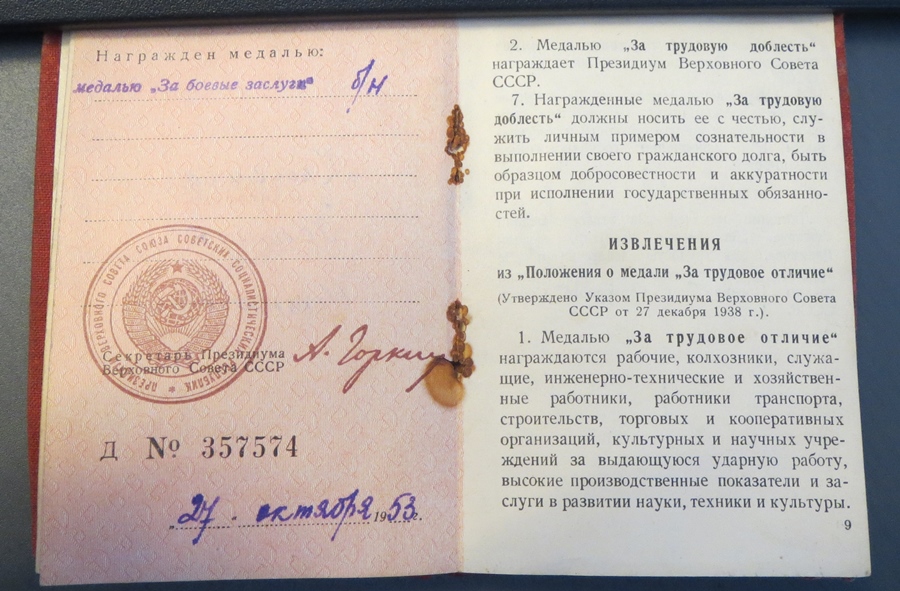 Награжден медалью:
медалью „За боевые заслуги“ б/н
ПРЕЗИДИУМ ВЕРХОВНОГО СОВЕТА СОЮЗА СОВЕТСКИХ СОЦИАЛИСТИЧЕСКИХ РЕСПУБЛИК
Секретарь Президиума
Верховного Совета СССР
А. Горкин
Д № 357574
„27“ октября 1953 г.
2. Медалью „За трудовую доблесть“
награждает Президиум Верховного Совета
СССР.
7. Награжденные медалью „За трудовую
доблесть“ должны носить ее с честью, слу-
жить личным примером сознательности в
выполнении своего гражданского долга, быть
образцом добросовестности и аккуратности
при исполнении государственных обязанно-
стей.
ИЗВЛЕЧЕНИЯ
из „Положения о медали „За трудовое отличие“
(Утверждено Указом Президиума Верховного Совета
СССР от 27 декабря 1938 г.).
1. Медалью „За трудовое отличие“
награждаются рабочие, колхозники, служа-
щие, инженерно-технические и хозяйствен-
ные работники, работники транспорта,
строительств, торговых и кооперативных
организаций, культурных и научных учре-
ждений за выдающуюся ударную работу,
высокие производственные показатели и за-
слуги в развитии науки, техники и культуры.
9